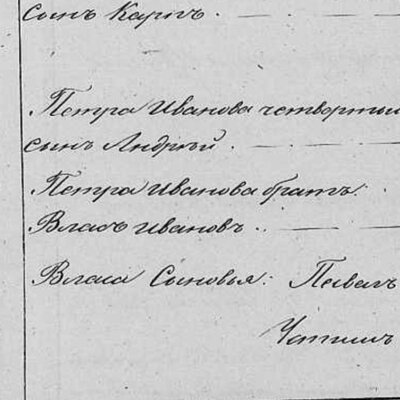 сынъ Карпъ.
Петра Иванова четвертый
сынъ Андрѣй.
Петра Иванова братъ:
Власъ Ивановъ.
Власа Сыновья: Павелъ